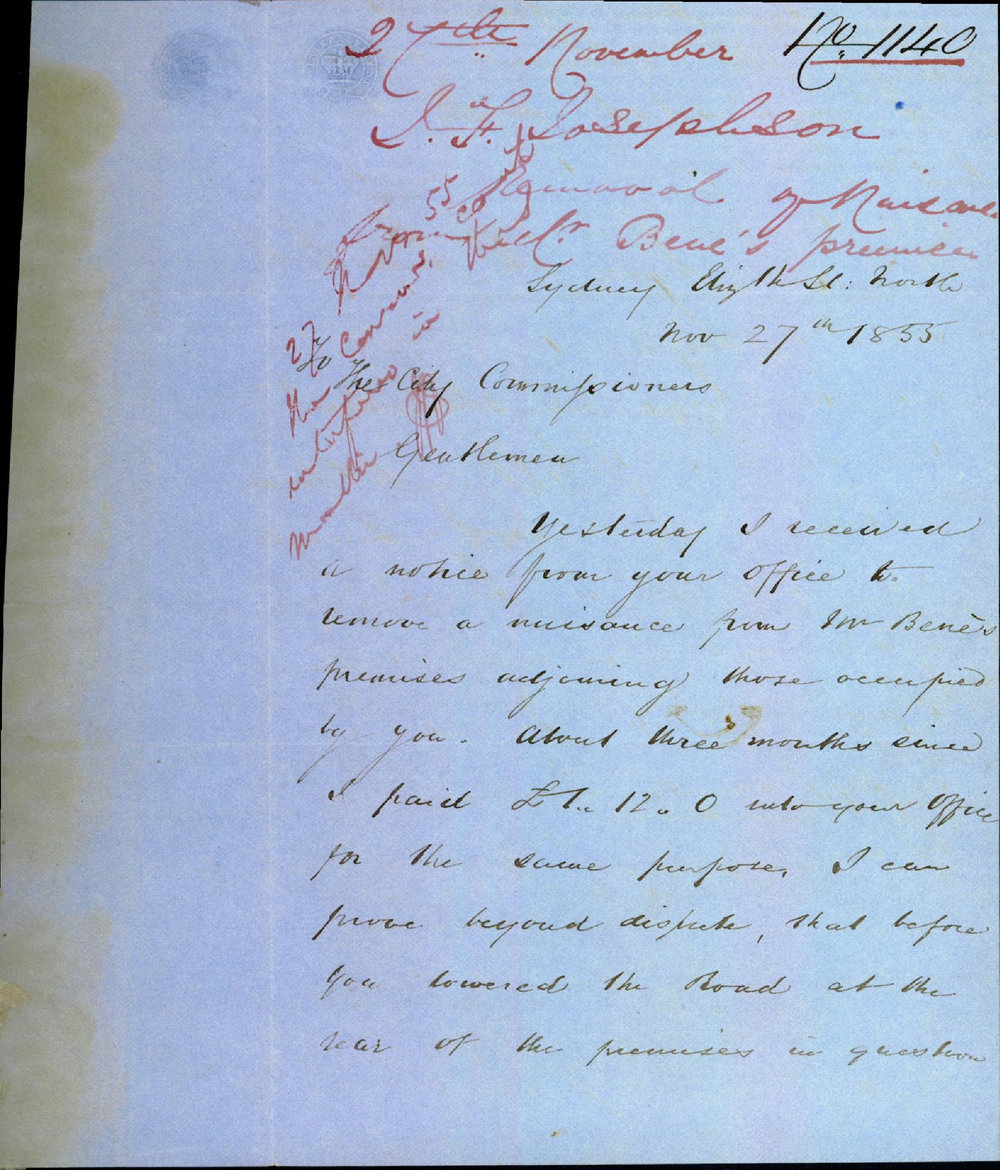 27th November No. 1140
J. F. Josephson
Removal of Nuisance
Mr Bene's premises
Sydney Elizth St: North
Nov 27th 1855
To The City Commissioners
Gentlemen
Yesterday I received
a notice from your office to
remove a nuisance from Mr Benè's
premises adjoining those occupied
by you. About three months since
I paid £1. 12. 0 into your Office
for the same purpose, I can
prove beyond dispute, that before
you lowered the Road at the
rear of the premises in question
27 Nov. 55
in this